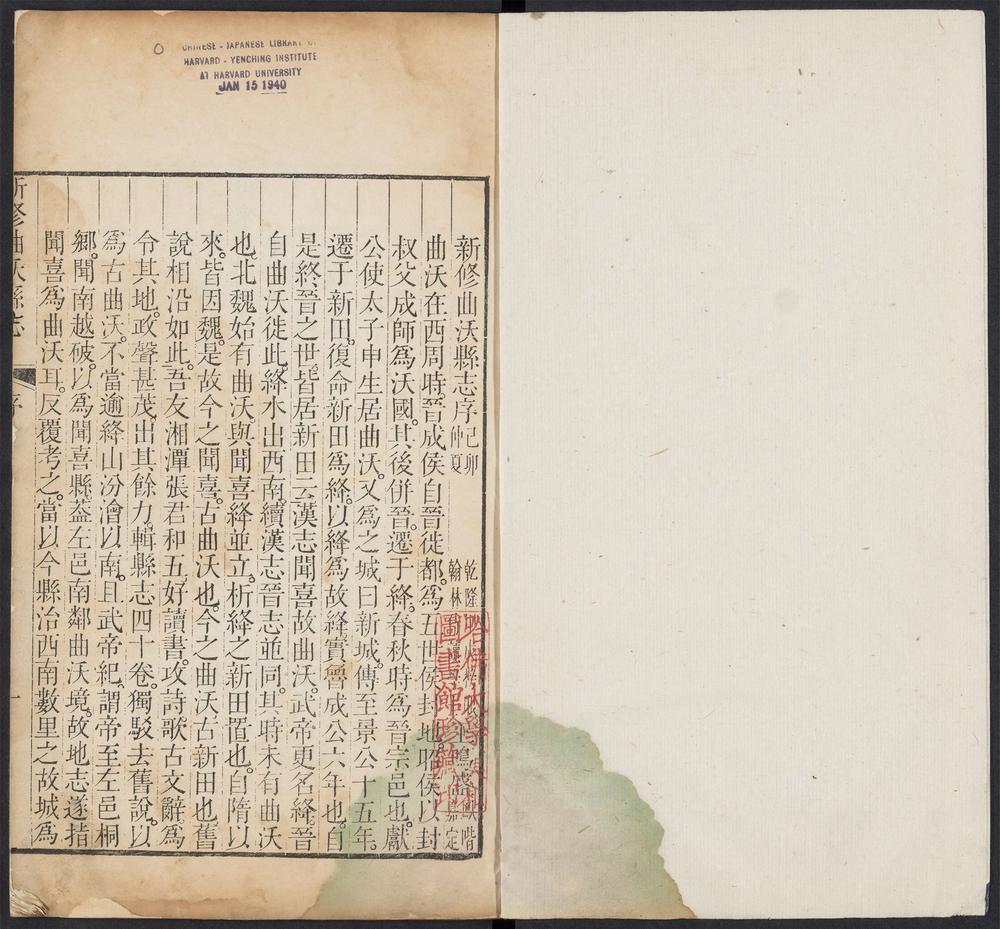 CHINESE - JAPANESE LIBRARY
HARVARD - YENCHING INSTITUTE
AT HARVARD UNIVERSITY
JAN 15 1940
新修曲沃縣志序 己卯仲夏
乾隆
翰林
鳴盛
嘉定
哈佛大學
圖書館珍藏印
曲沃在西周時。晉成侯自晉徙都。爲五世侯封地。昭侯以封
叔父成師爲沃國。其後併晉。遷于絳。春秋時爲晉宗邑也。獻
公使太子申生居曲沃。又爲之城曰新城。傳至景公十五年。
遷于新田。復命新田爲絳。以絳爲故絳。實魯成公六年也。自
是終晉之世。皆居新田云。漢志聞喜故曲沃。武帝更名。絳晉
自曲沃徙此。絳水出西南。續漢志晉志並同。其時未有曲沃
也。北魏始有曲沃。與聞喜絳並立。析絳之新田置也。自隋以
來。皆因魏。是故今之聞喜。古曲沃也。今之曲沃。古新田也。舊
說相沿如此。吾友湘潭張君和五。好讀書。攻詩歌古文辭。爲
令其地。政聲甚茂。出其餘力。輯縣志四十卷。獨駁去舊說。以
爲古曲沃。不當逾絳山汾澮以南。且武帝紀。謂帝至左邑桐
鄉。聞南越破。以爲聞喜縣。葢左邑南鄰曲沃境。故地志遂指
聞喜爲曲沃耳。反覆考之。當以今縣治西南數里之故城爲
新修曲沃縣志 序 一